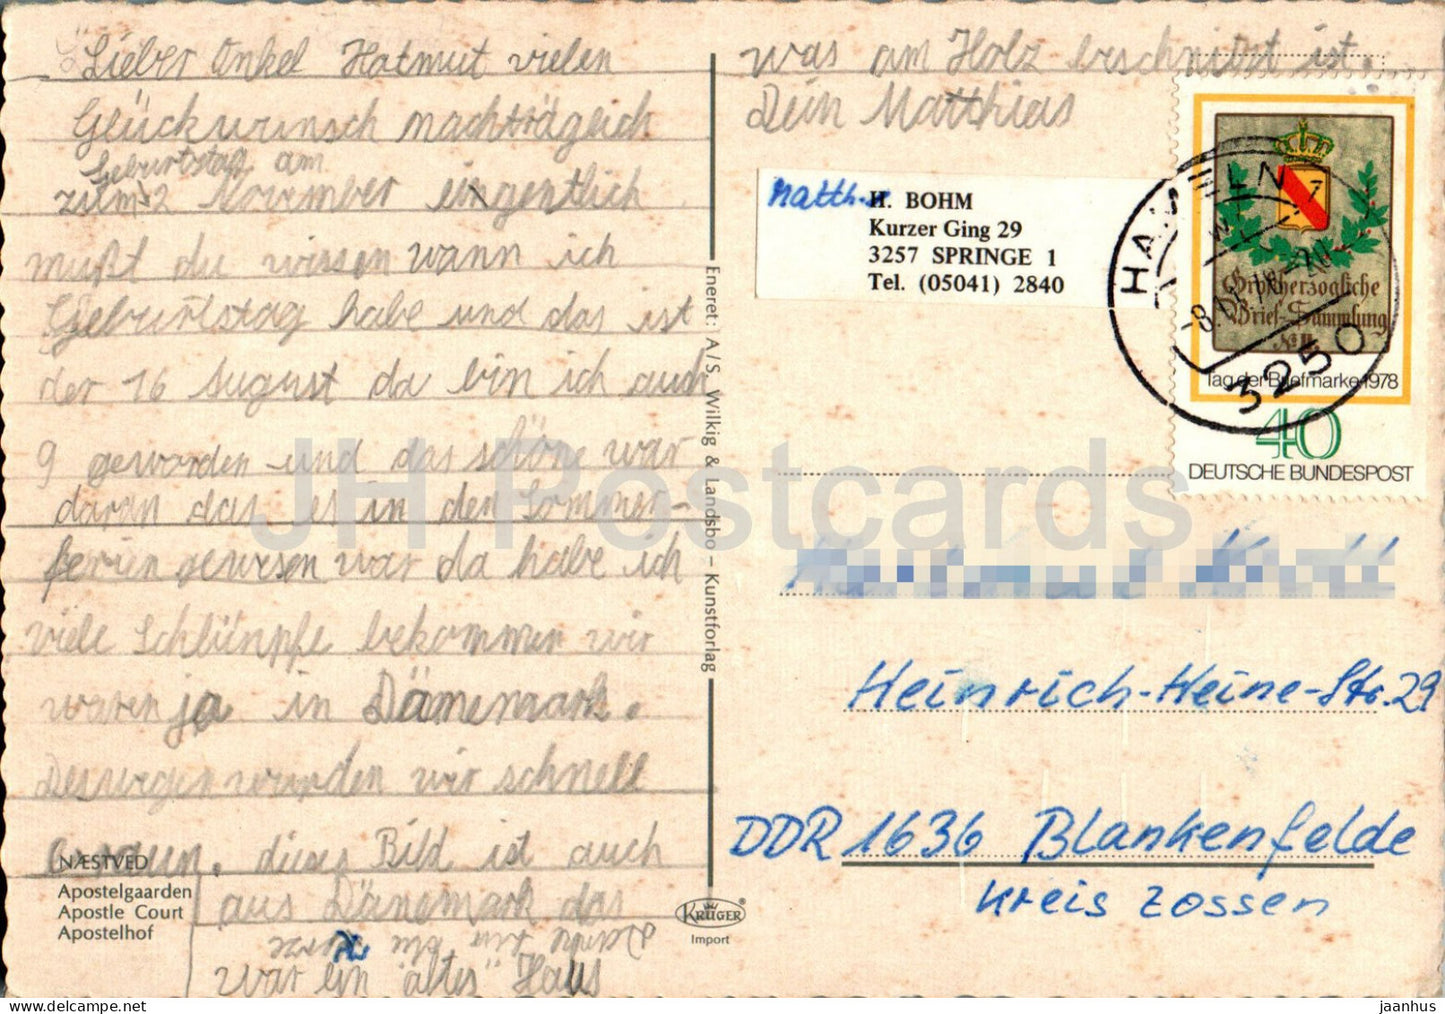 Lieber Onkel Hatmut vielen
Glückwunsch nachträglich
Geburtstag am
zum 2 November eingentlich
mußt du wissen wann ich
Geburtstag habe und das ist
der 16 August da bin ich auch
9 geworden und das schön war
daran das es in den Sommer-
ferien gewesen war da habe ich
viele Schlümpfe bekommen wir
waren ja in Dänemark.
Deswegen wurden wir schnell
braun. dieses Bild ist auch
aus Dänemark das
war ein "altes" Haus
NÆSTVED
Apostelgaarden
Apostle Court
Apostelhof
Eneret: A/S. Wilkig & Landsbo – Kunstforlag
KRÜGER®
Import
was am Holz beschnitzt ist.
Dein Matthias
Matth. H. BOHM
Kurzer Ging 29
3257 SPRINGE 1
Tel. (05041) 2840
HAMELN 1
3250
Großherzogliche
Brief-Sammlung
Tag der Briefmarke 1978
40
DEUTSCHE BUNDESPOST
Heinrich-Heine-Str. 29
DDR 1636 Blankenfelde
Kreis Zossen
JH Postcards
jaanhus